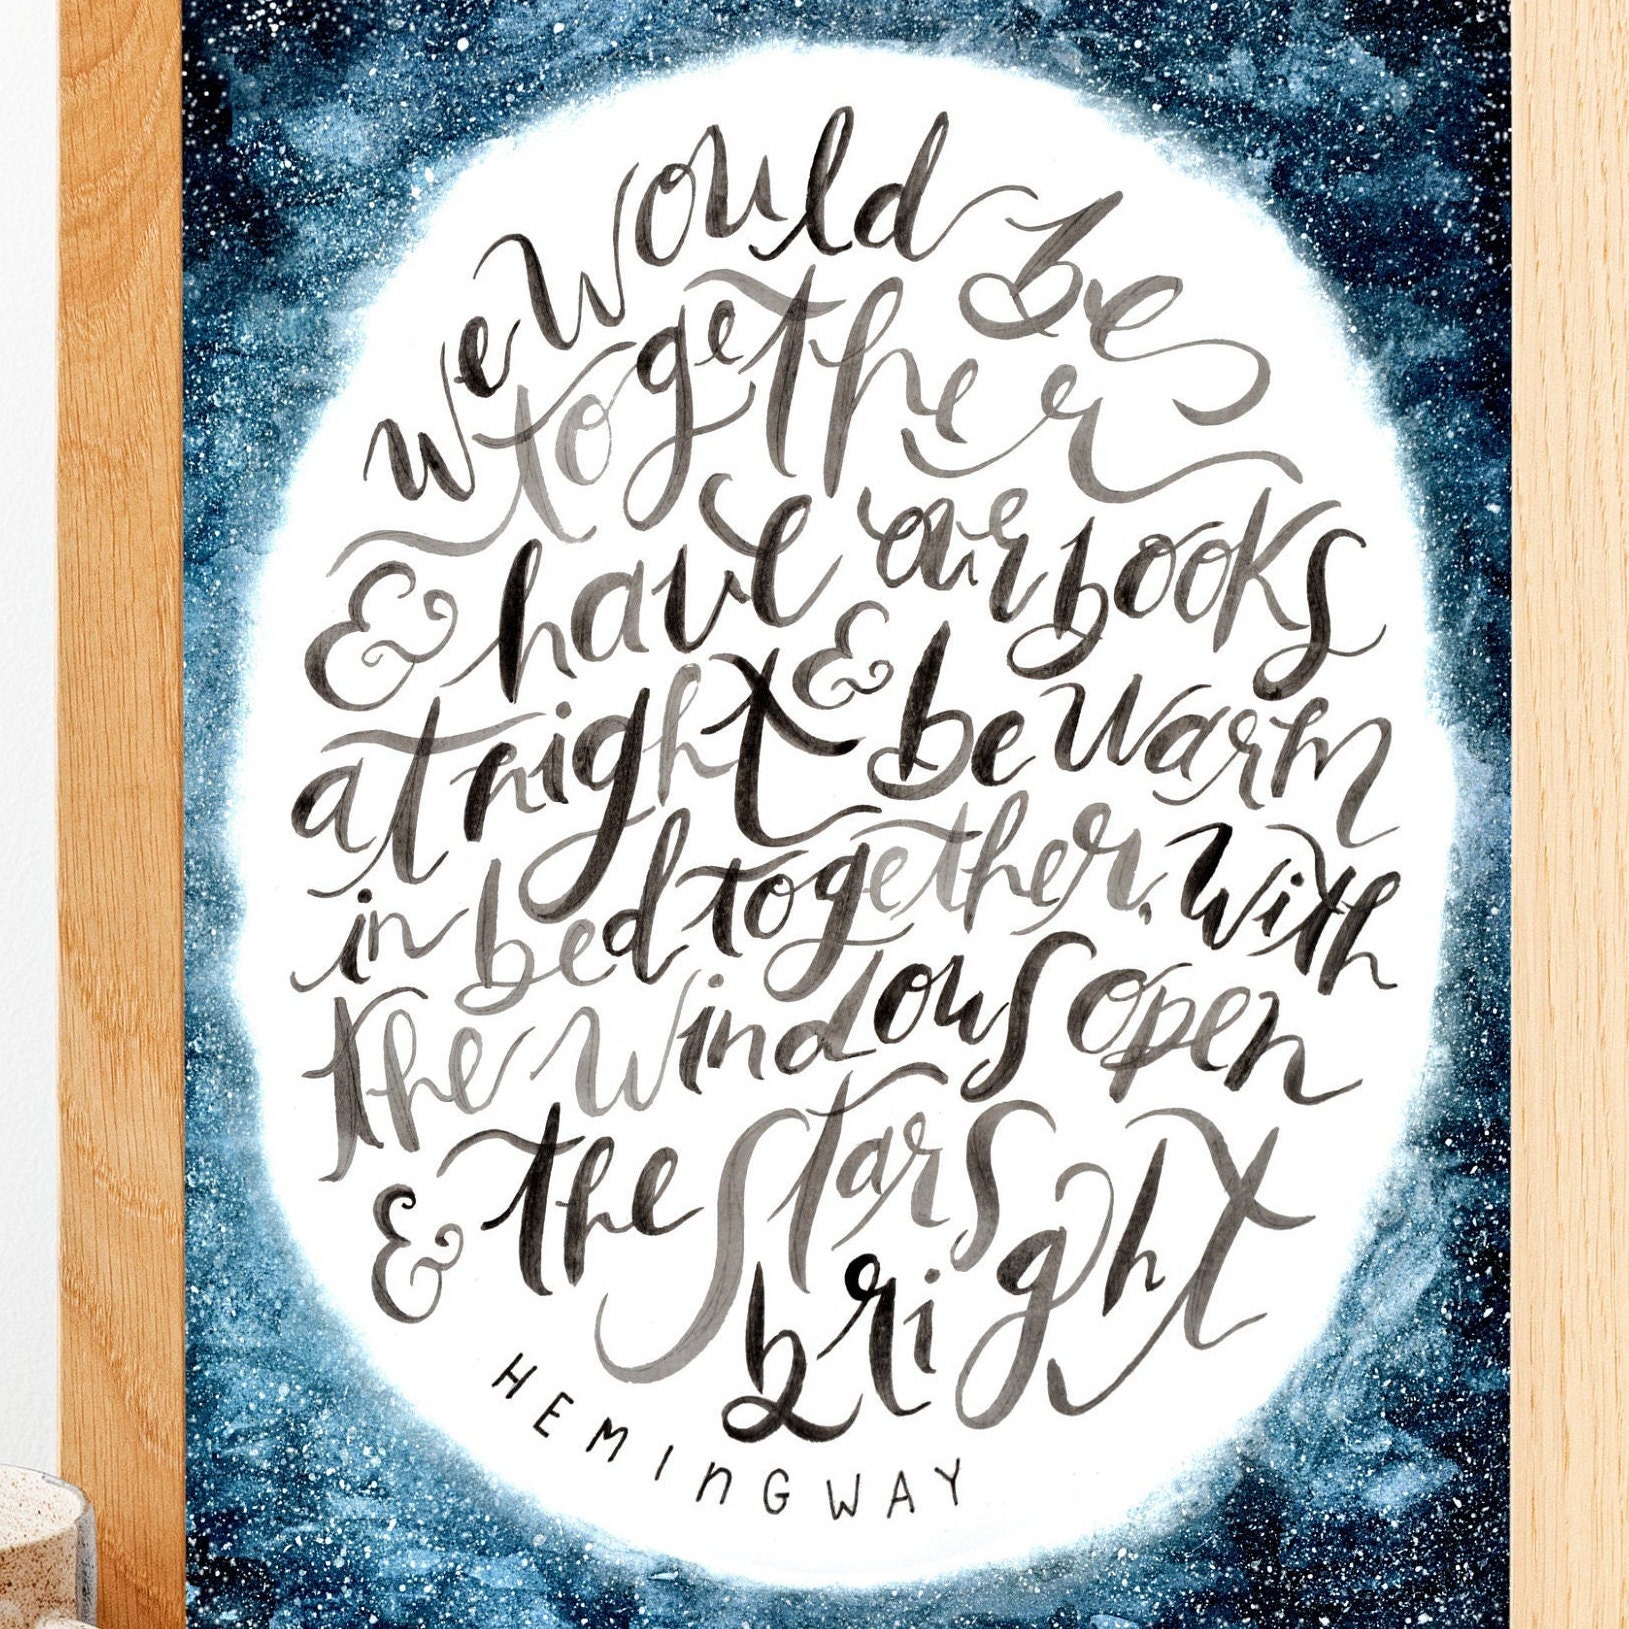 we would be
together
& have our books
at night & be warm
in bed together, with
the windows open
& the stars
bright
HEMINGWAY